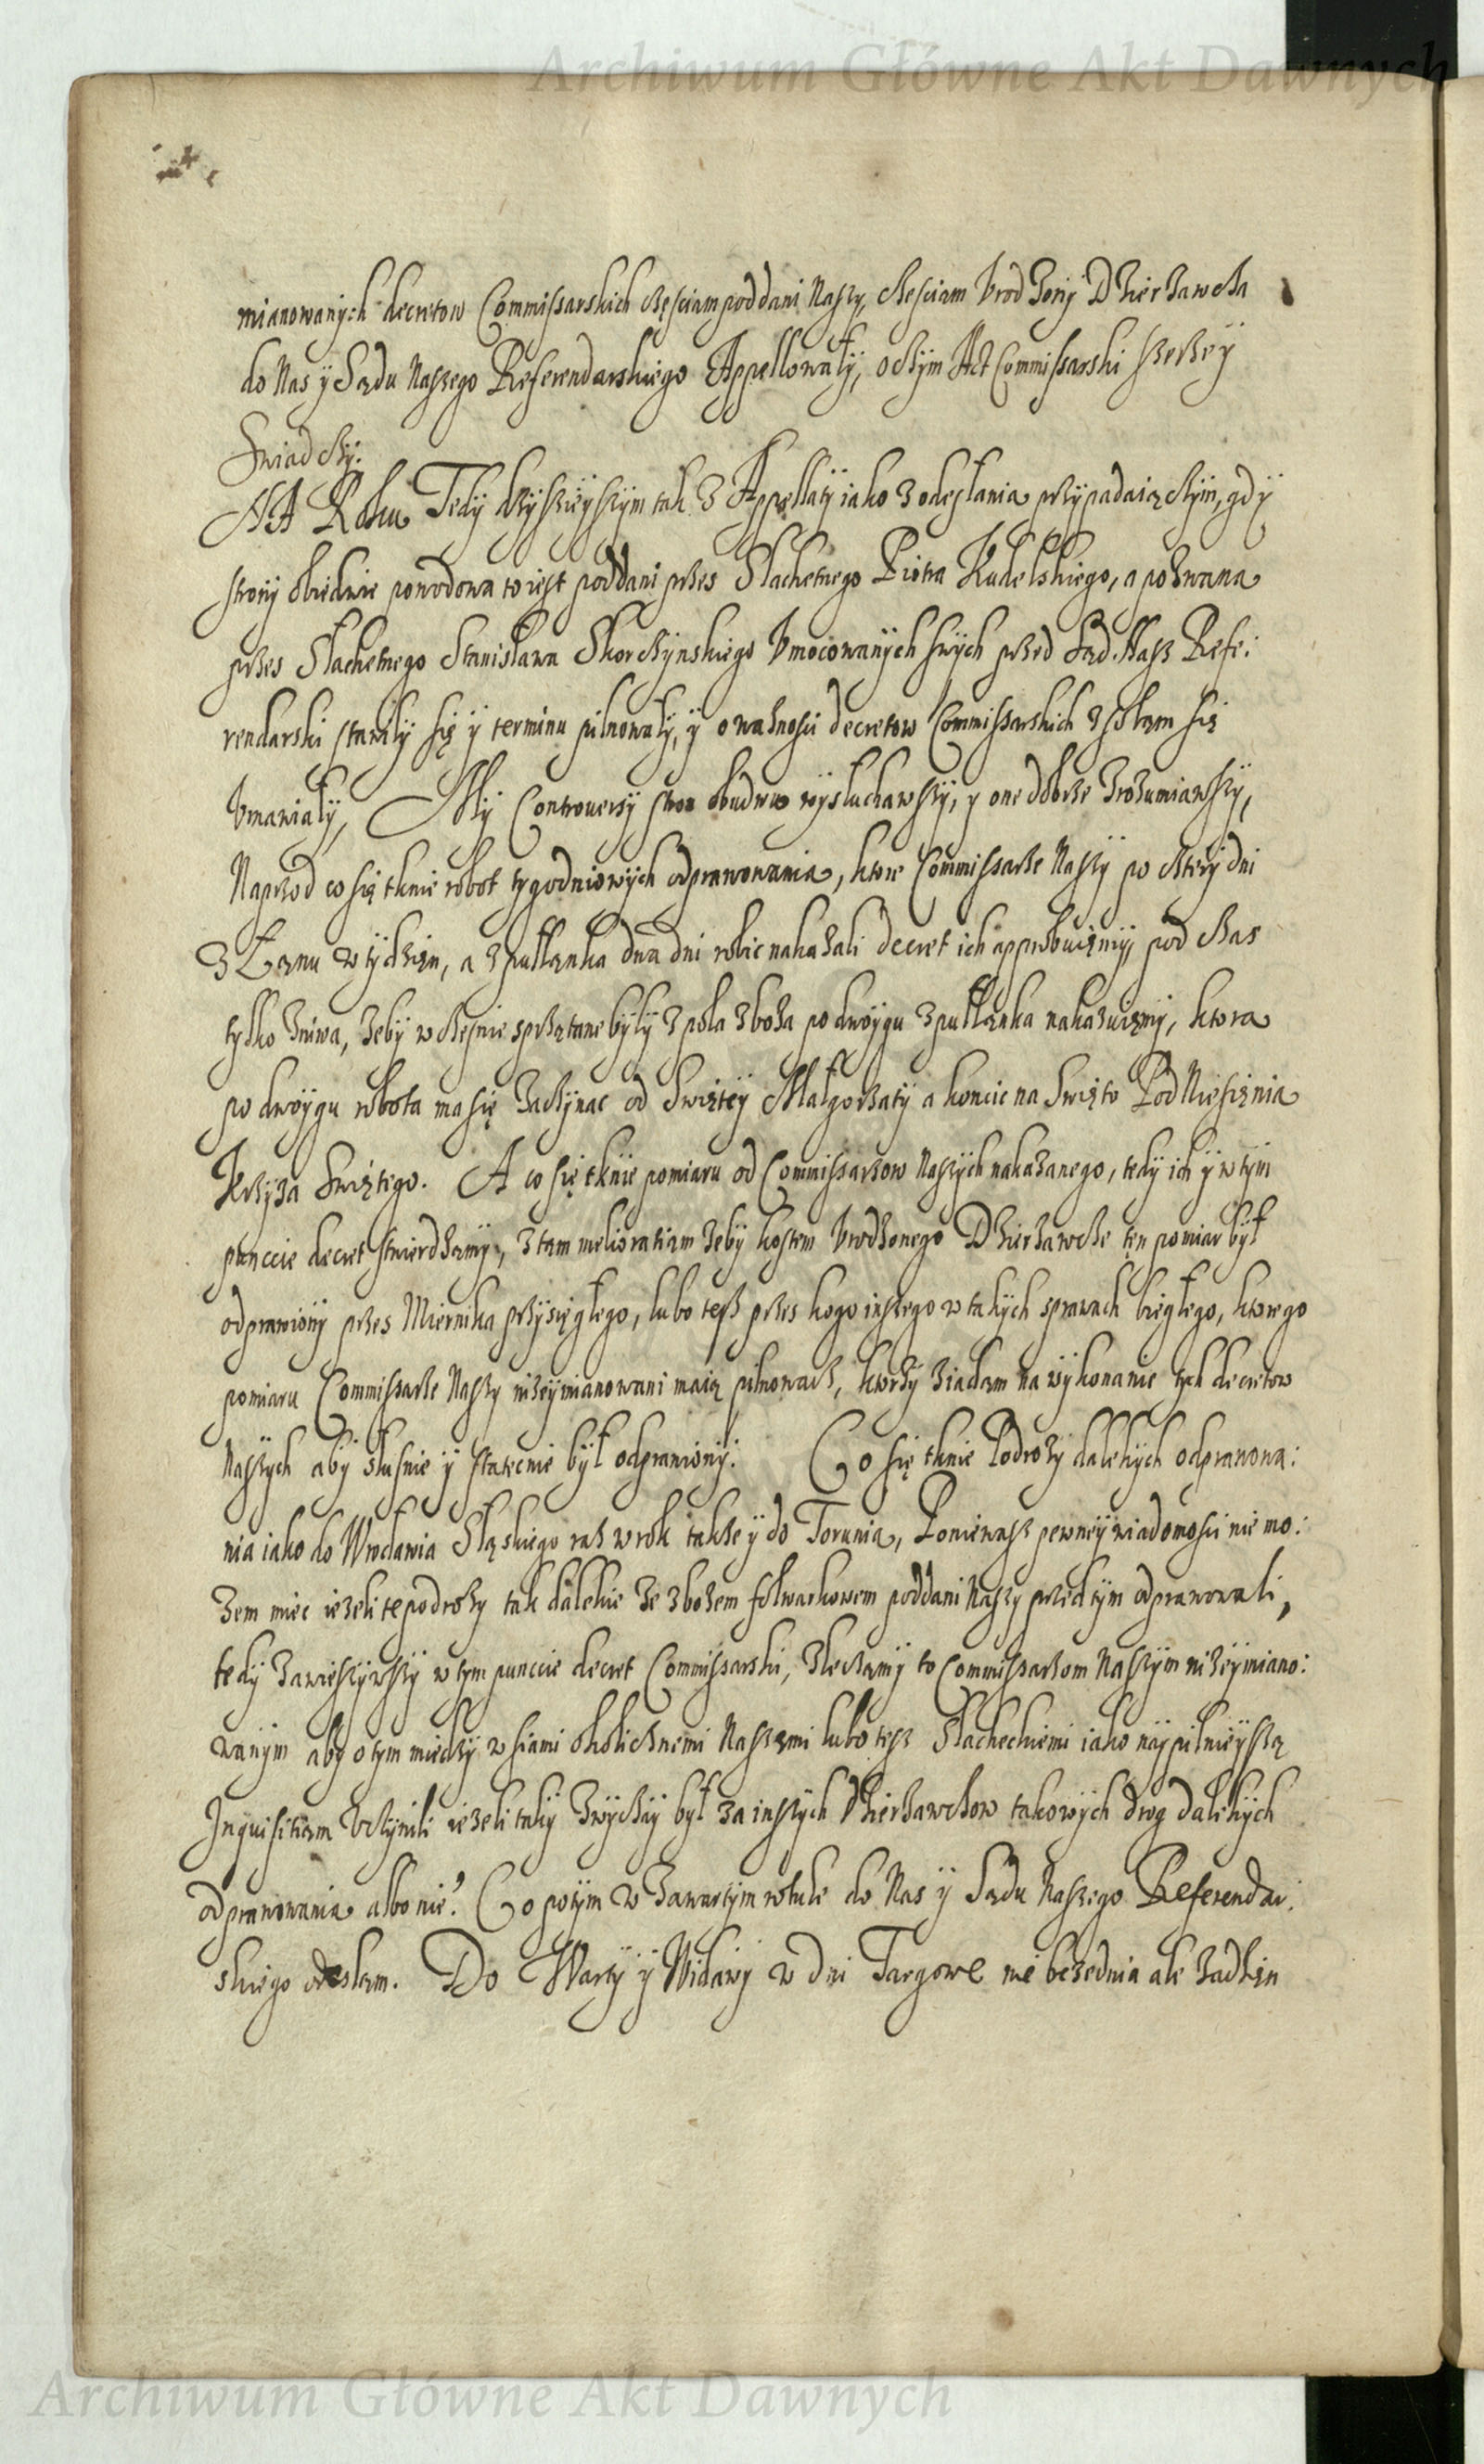 Archiwum Główne Akt Dawnych
mianowanÿch decretow Commissarskich częsciam poddani Naszy, cżesciam Vrodzony Dzierzawcza
do Nas ÿ Sądu Naszego Referendarskiego Appellowałÿ, o czÿm Akt Commissarski szerzeÿ
Swiadczÿ:
NA Roku Tedÿ dzÿsieÿszÿm tak z Appellatÿ iako z odesłania przÿpadaiączÿm, gdÿ
stronÿ obiedwie powodowa to iest poddani przes Slachetnego Piotra Kudelskiego, a pozwana
przes Slachetnego Stanisława Skorczÿnskiego Vmocowanÿch swÿch przed Sąd Nasz Refe:
rendarski stawiłÿ się ÿ terminu pilnowałÿ, ÿ o waznosci decretow Commissarskich z sobam się
Vmawiałÿ, Mÿ Controuersÿ stron obudwu wÿsłuchawszÿ, y one ddobrze zrozumiawszÿ,
Naprzod co się tknie robot tÿgodniowÿch odprawowania, ktore Commissarze Naszÿ po czterÿ dni
z Łanu w tÿdzięn, a z pułłanka dwa dni robic nakazali decret ich approbuięmÿ, pod czas
tylko zniwa, zebÿ w czesnie sprzątane bÿłÿ z pola zboza po dwoÿgu z pułłanka nakazuięmÿ, ktora
po dwoÿgu robota ma się zaczÿnac od Swiętÿ Małgorzatÿ a koncic na Swięto Podniesięnia
Krzÿza Swiętego. A co się tknie pomiaru od Commissarzow Naszÿch nakazanego, tedÿ ich ÿ w tÿm
punccie decret stwierdzamÿ, z tam melioratiam zebÿ kosztem Vrodzonego Dzierzawcze tęn pomiar bÿł
odprawionÿ przes Miernika przÿsięgłego, lubo tesz przes kogo inszego w takÿch sprawach biegłego, ktorego
pomiaru Commissarze Naszy nizeÿmianowani maią pilnowacz, ktorzÿ ziadam na wÿkonanie tÿch decretow
Naszÿch abÿ słusnie ÿ statecznie bÿł odprawionÿ: Co się tknie Podrozÿ dalekÿch odprawowa:
nia iako do Wrocławia Sląskiego raz w rok takze ÿ do Torunia, Poniewasz pewneÿ wiadomosci nie mo:
zem miec iezeli te podrozy tak dalekie ze zbozem folwarkowem poddani Naszy przed tÿm odprawowali,
tedÿ zawiesiwszÿ w tym punccie decret Commissarski, Zlecamÿ to Commissarzom Naszÿm nizeÿmiano:
wanÿm abÿ o tÿm międzÿ wsiami okolicznemi Naszemi lubo tesz Slacheckiemi iako naÿpilnieÿszą
Inquisitiam Vczÿnili iezeli takÿ zwÿczaÿ bÿł za inszÿch Dzierzawcow takowÿch drog dalekÿch
odprawowania albo nie? Co potÿm w zawartÿm rotule do Nas ÿ Sądu Naszego Referendar:
skiego odeslam. Do Wartÿ ÿ Widawÿ w dni Targowe nie bezednia ale zadzięn
Archiwum Główne Akt Dawnych